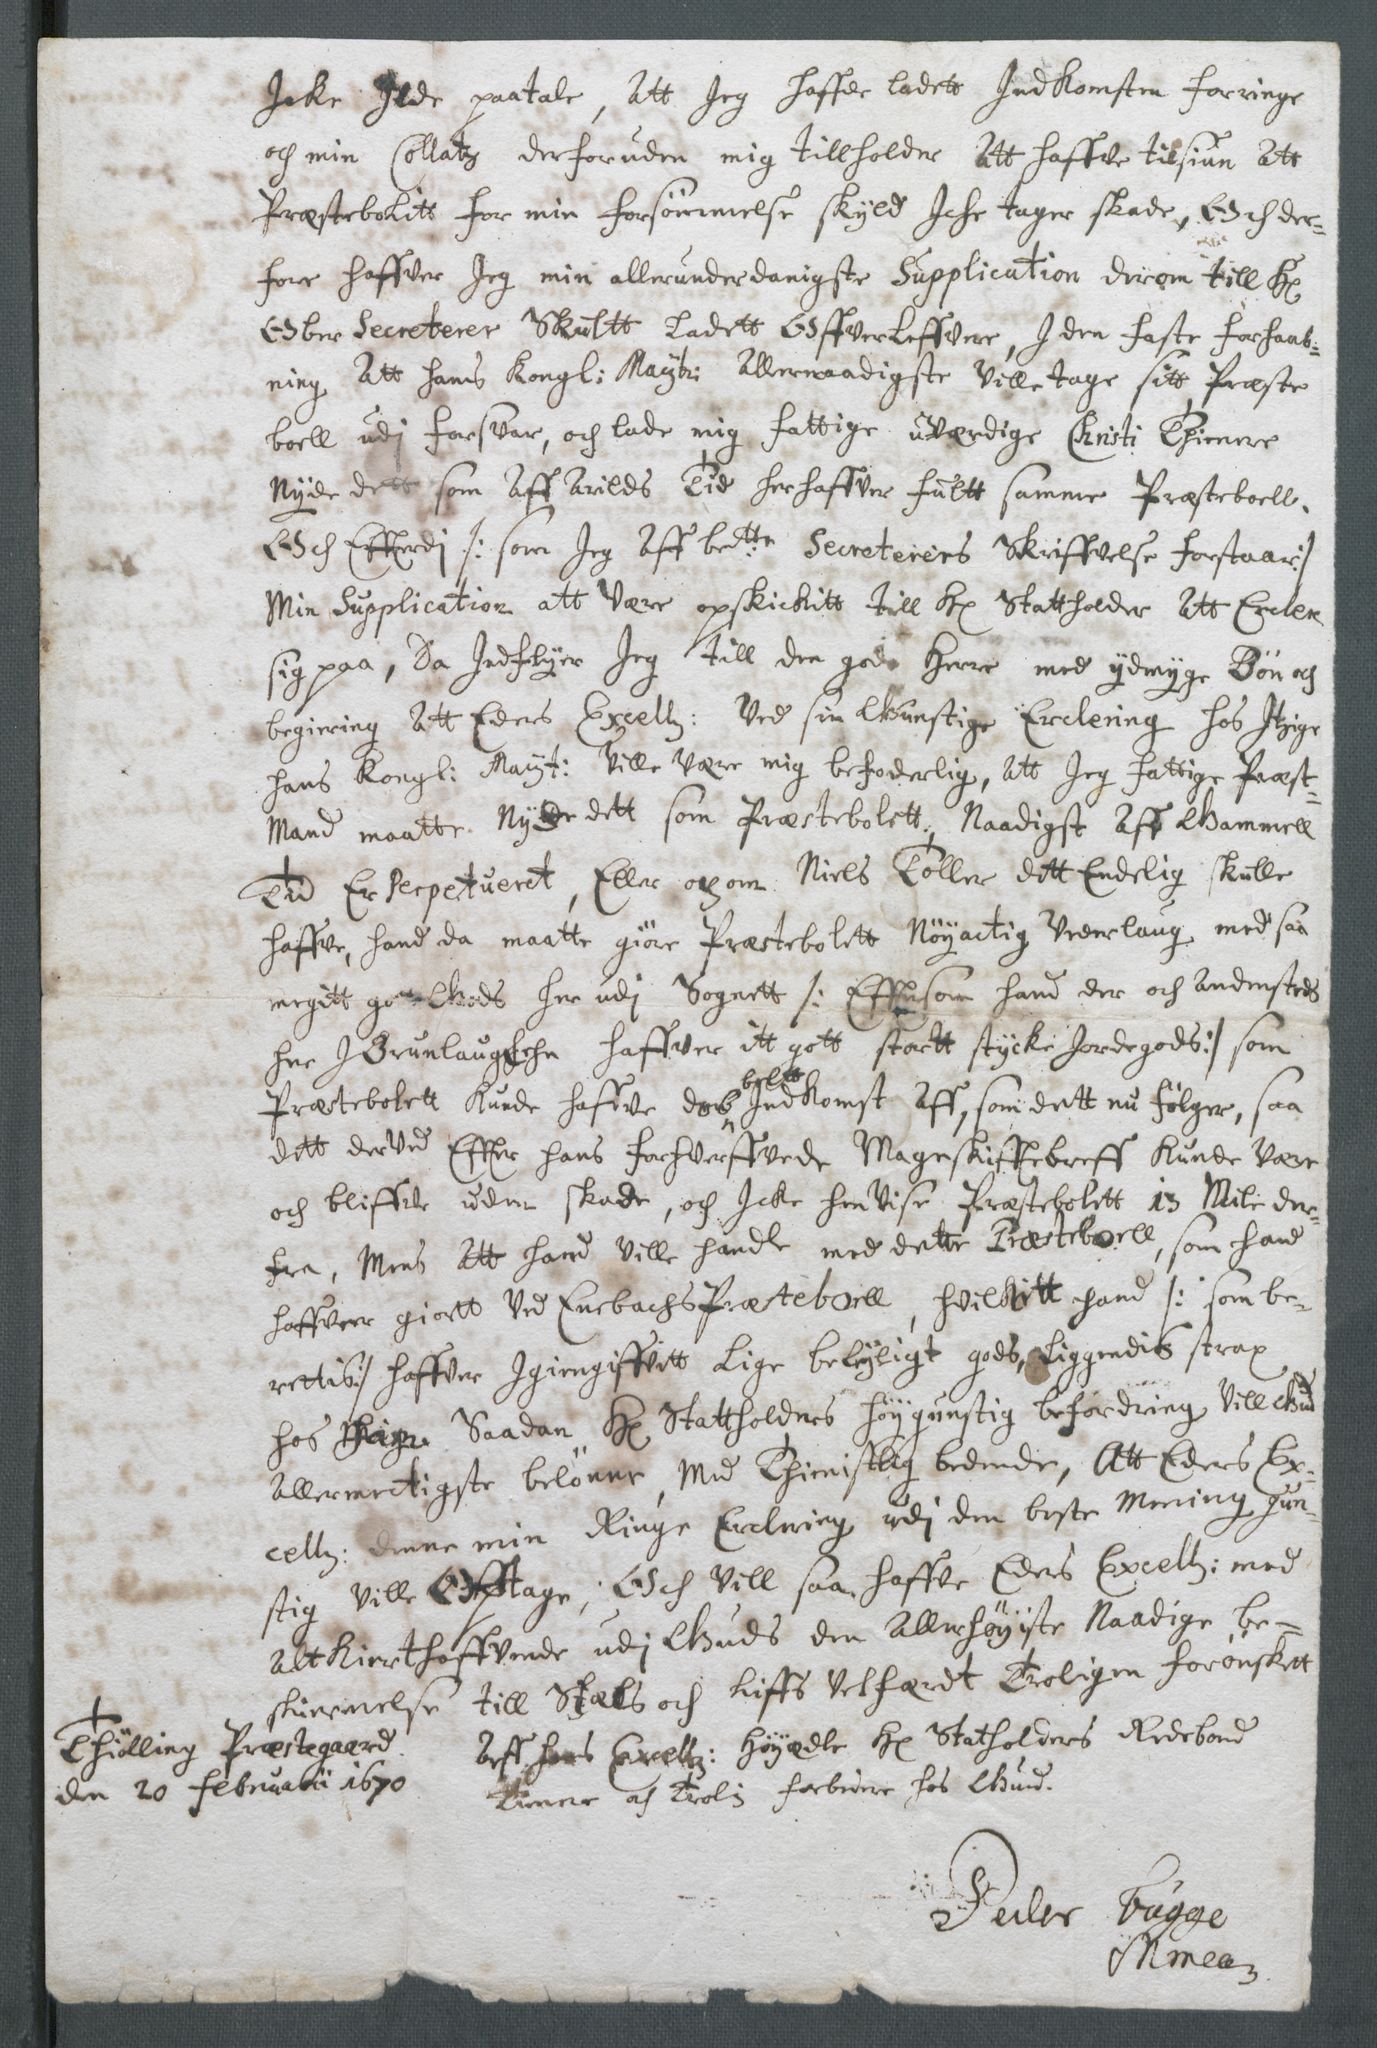 Icke skde paatale, Att Jeg haffde ladett Indkomsten forringe
och min Collatz derforuden mig tillholder Att haffve tilsiun Att
Præstebolitt for min forsömmelse skÿld Iche tager skade, Och der-
fore haffver Jeg min allerunderdanigste Supplication derom till Hr
Ober Secreterer Skultt Ladett Offverleffvere, J den faste forhaab:
ning Att hans Kongl: Maytz: Allernaadigste Ville tage sitt Præste
boell udj forsvar, och lade mig fattige uværdige Christi Thienere
Nÿde dett som Aff Arilds Tid her haffver fultt samme Præsteboell.
Och Efterdj /: som Jeg Aff bedtte Secreterers Skriffvelse forstaar:/
Min Supplication att Være opskickitt till Hr Stattholder Att Ercler
sig paa, Da Indflÿer Jeg till den gode Herre med ÿdmyge Bön och
begiering Att Eders Excellz: Ved sin Gunstige Erclering hos Itzige
hans Kongl: Mayt: Ville Være mig befoderlig, Att Jeg fattige Præst-
Mand maatte Nÿde dett som Præstebolett, Naadigst Aff Gammell
Tid Er Perpetueret, Eller och om Niels Toller dett Endelig skulle
haffve, hand da maatte giöre Præstebolett Nöÿactig Vederlaug med saa
megitt gott Gods her udj Sognett /: Eftersom hand der och andensteds
her J Brunlaug Lehn haffver itt gott stortt stÿcke Jordegods:/ som
Præstebolett Kunde haffve dob beltt Indkomst Aff, som dett nu fölger, saa
dett derved Effter hans forhverffvede Mageskifftebreff Kunde være
och bliffve uden skade, och Icke henvise Præstebolett 13 Mile der-
fra, Mens Att hand Ville handle med dette Præsteboell, som hand
haffver giortt Ved Enebachs Præsteboell, hvilkitt hand /: som be-
rettis:/ haffver Igiengiffvitt Lige beleÿligt gods, Liggendis strax
hos Saadan Hr Stattholders höÿgunstig befordring Vill Gud
Allermectigste belönne, Med Thienistlig bedende, Att Eders Ex-
cellz: denne min Ringe Erclering udj den beste Mening gun-
stig Ville Optage, Och Vill saa haffve Eders Excellz: med
Alt Kiert haffvende udj Guds den Allerhöÿiste Naadige be-
skiermelse till Siæls och Liffs Velfærdt Troligen forönskett
Thiölling Præstegaard
den 20 februarii 1670
Aff hans Excellz: Höÿædle Hr Statholders Redebond
Tienere och Trolig forbiedere hos Gud.
Peder Bugge
Mmea